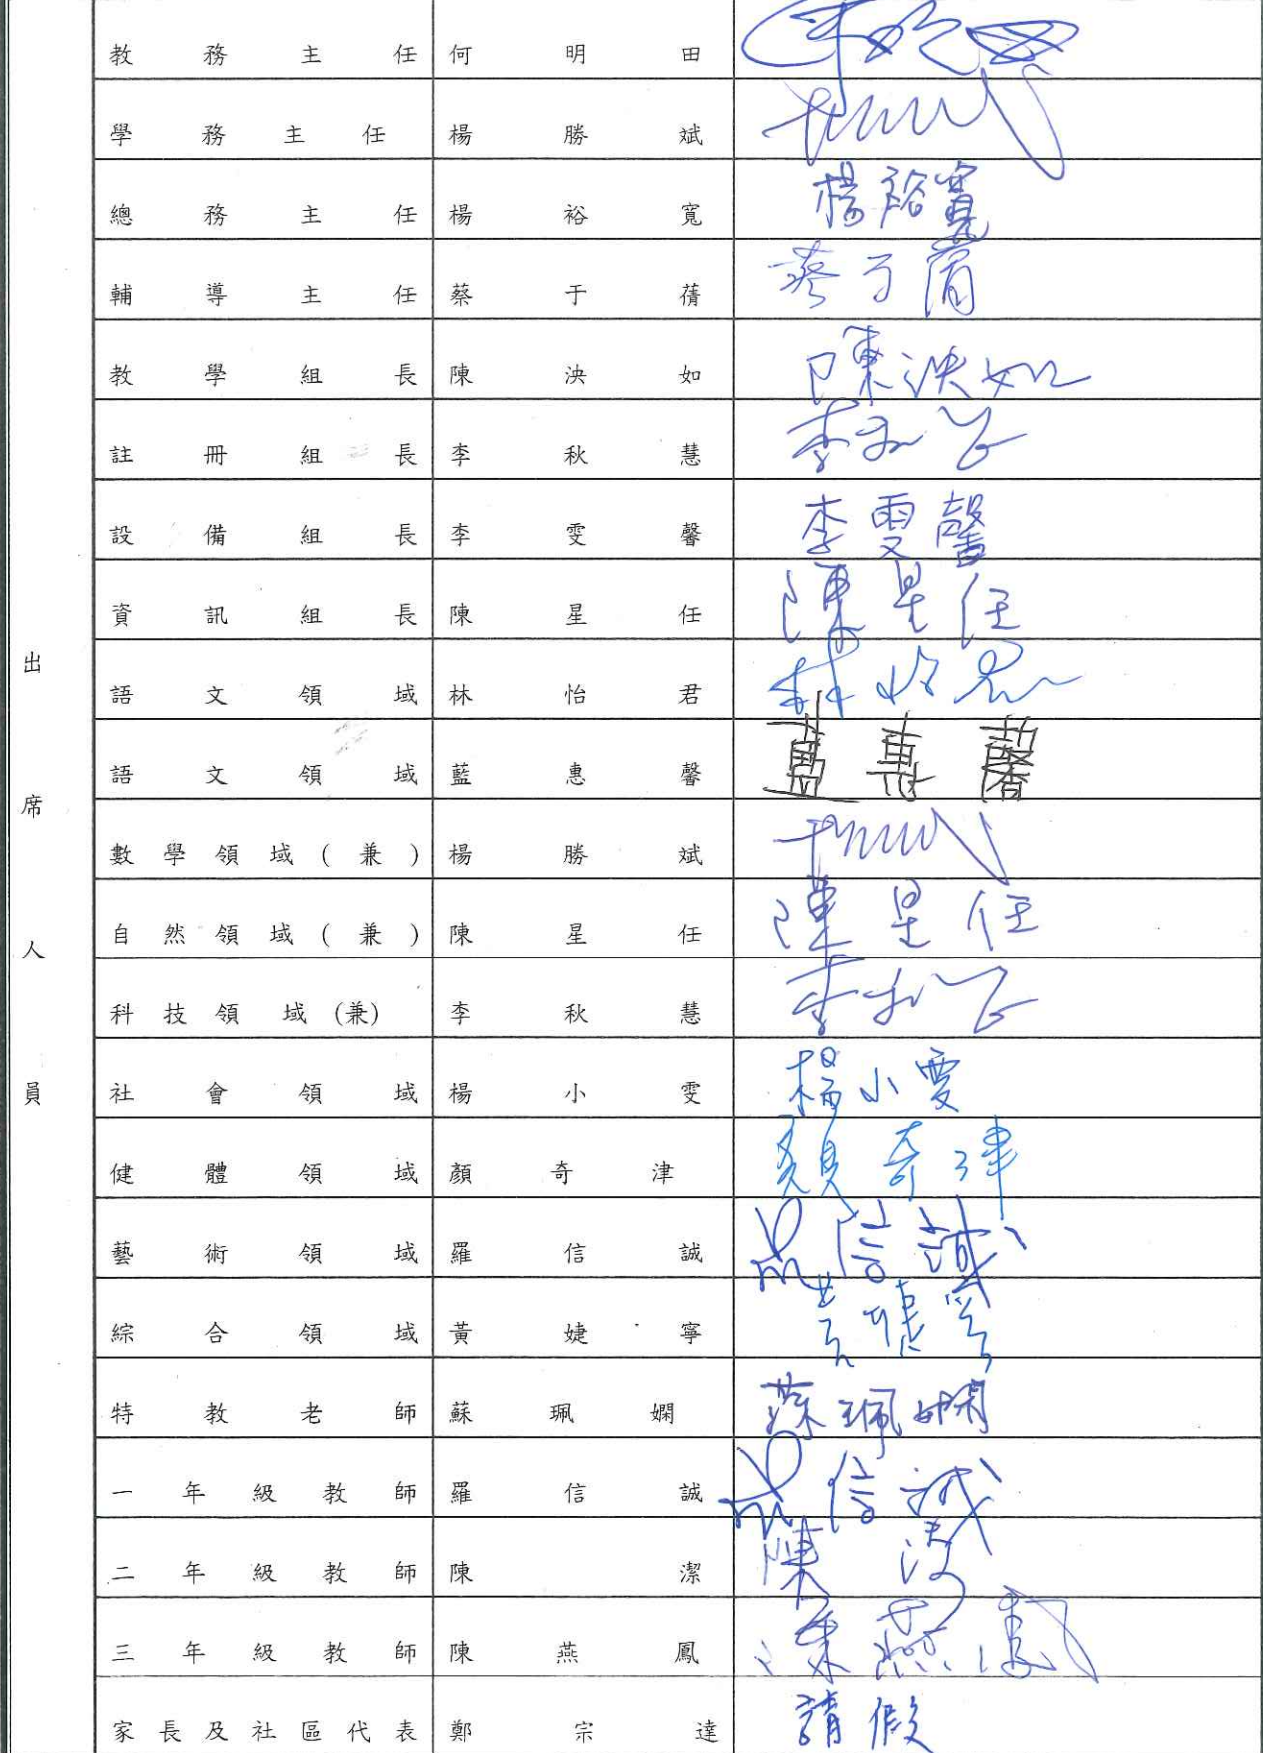 教務主任 何明田
學務主任 楊勝斌
總務主任 楊裕寬 楊裕寬
輔導主任 蔡于蒨 蔡于蒨
教學組長 陳泱如 陳泱如
註冊組長 李秋慧 李秋慧
設備組長 李雯馨 李雯馨
資訊組長 陳星任 陳星任
語文領域 林怡君 林怡君
語文領域 藍惠馨 藍惠馨
數學領域(兼) 楊勝斌
自然領域(兼) 陳星任 陳星任
科技領域(兼) 李秋慧 李秋慧
社會領域 楊小雯 楊小雯
健體領域 顏奇津 顏奇津
藝術領域 羅信誠 羅信誠
綜合領域 黃婕寧 黃婕寧
特教老師 蘇珮嫻 蘇珮嫻
一年級教師 羅信誠 羅信誠
二年級教師 陳潔 陳潔
三年級教師 陳燕鳳 陳燕鳳
家長及社區代表 鄭宗達 請假
出席人員